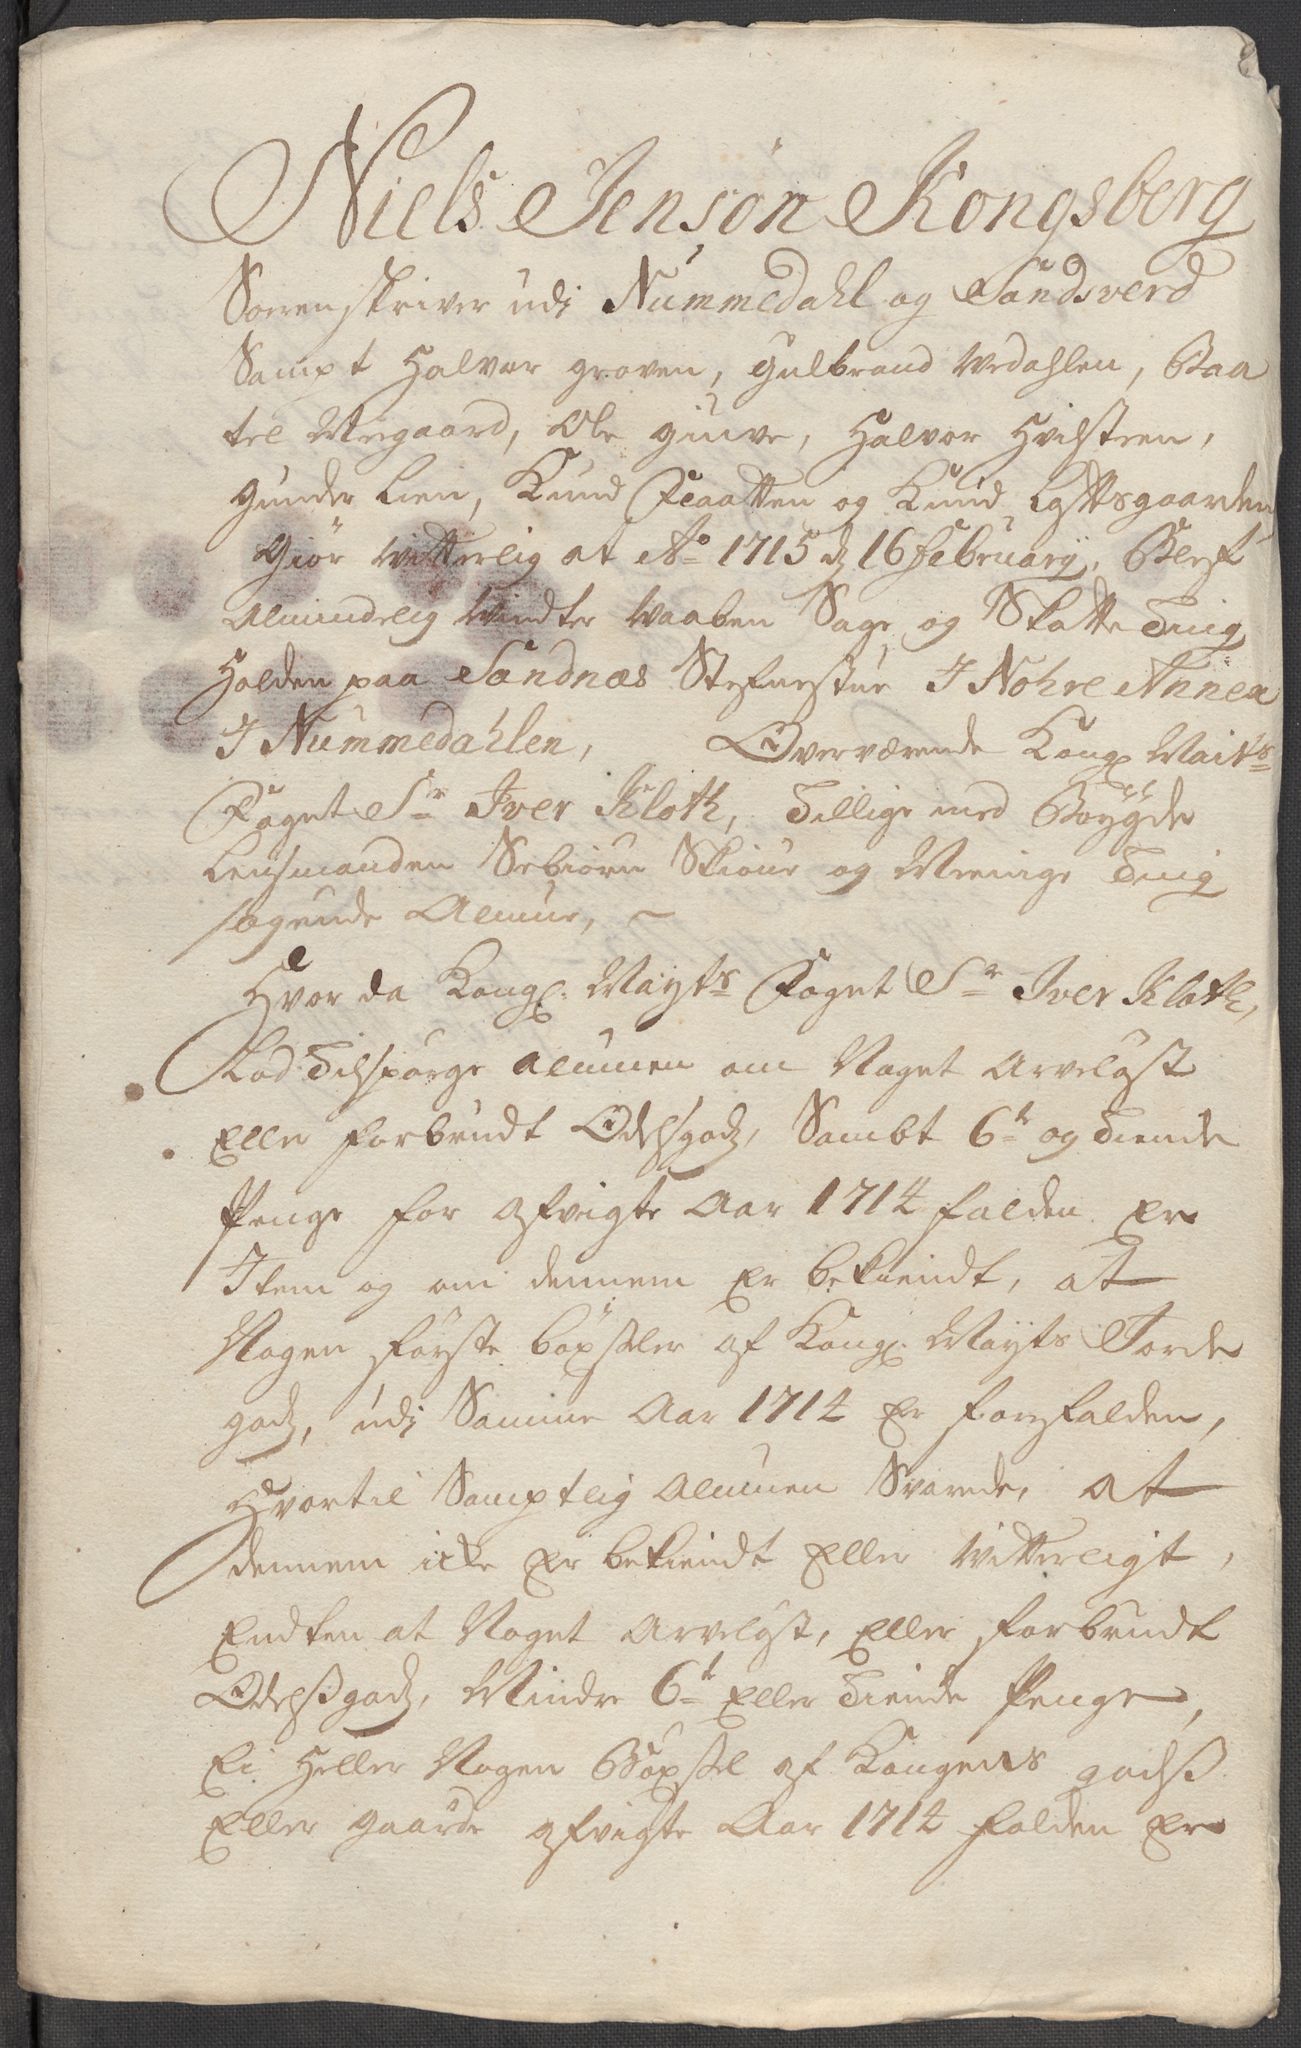 Niels Jensøn Kongsberg
Sorrenskriver udj Nummedahl og Sandsverd
Sampt Halvor Groven, Gulbrand Wrdahlen, Baa
tel Megaard, Ole giuve, Halvor Hvilsteen,
Gunder Lien, Knud Fraatten og Knud
Giör Witterlig at Ao 1715 d 16 Februarÿ, Blef
Almindelig Windter Waaben Sage og Skatte Ting
Holden paa Sandnæs Stefnestue J Nohre Annex
J Nummedahlen, Overværende Kongl Maits
Foget Sr Iver Kloth, Tillige med Böÿgde
Lensmanden Sebiörn Skiöne og Meenige Ting
søgende Almue,
Hvor da Kongl. Maÿts Foget Sr Iver Kloth,
Lod Tilspørge Almuen om Noget Arveløst
Eller forbrudt Odelsgodz, Sambt 6te og Tiende
Penge for afvigte Aar 1714 falden Er
Item og om dennem Er bekiendt, at
Nogen förste böxseler af Kongl. Maÿts Jorde
godz, udj Samme Aar 1714 Er forfalden,
Hvortil Samptlig Almuen Svarede, at
dennem icke Er bekiendt Eller Witterligt,
Endten at Noget Arveløst, Eller forbrudt
Odelßgodz, Mindre 6te Eller Tiende Penge,
Ei Heller Nogen Böxsel af Kongens godß
Eller gaarde afvigte Aar 1714 falden Er